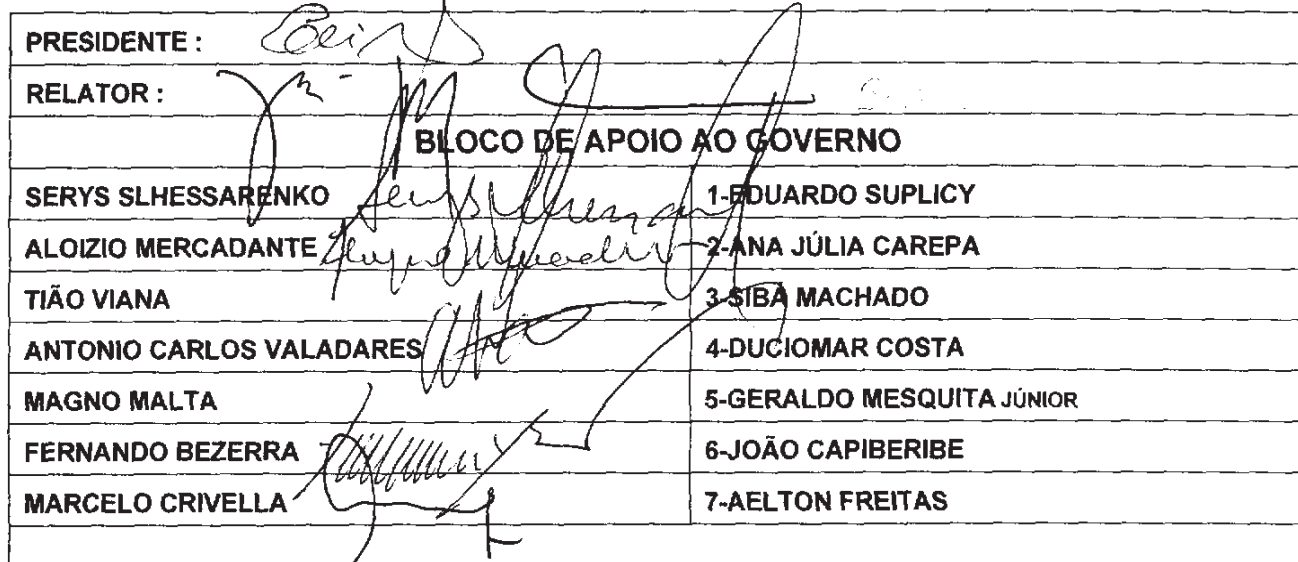 PRESIDENTE :
RELATOR :
BLOCO DE APOIO AO GOVERNO
SERYS SLHESSARENKO 1-EDUARDO SUPLICY
ALOIZIO MERCADANTE 2-ANA JÚLIA CAREPA
TIÃO VIANA 3-SIBÁ MACHADO
ANTONIO CARLOS VALADARES 4-DUCIOMAR COSTA
MAGNO MALTA 5-GERALDO MESQUITA JÚNIOR
FERNANDO BEZERRA 6-JOÃO CAPIBERIBE
MARCELO CRIVELLA 7-AELTON FREITAS